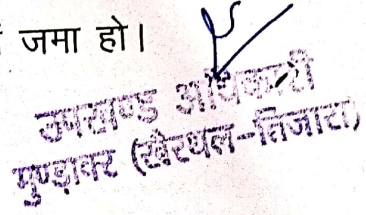 जमा हो।
उपखण्ड अधिकारी
मुण्डावर (खैरथल-तिजारा)